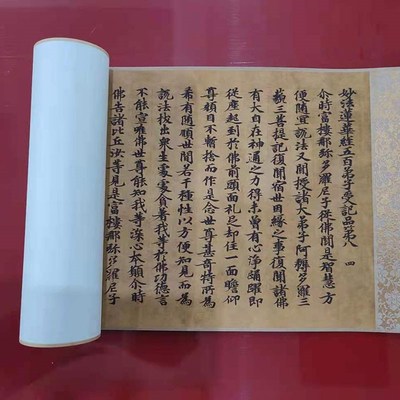 妙法蓮華經五百弟子受記品第八 四
尒時富樓那弥多羅尼子從佛聞是智慧方
便隨宜說法又聞授諸大弟子阿耨多羅三
藐三菩提記復聞宿世因緣之事復聞諸佛
有大自在神通之力得未曾有心淨踊躍即
從座起到於佛前頭面礼足却住一面瞻仰
尊顏目不暫捨而作是念世尊甚奇特所為
希有隨順世間若干種性以方便知見而為
說法拔出眾生處處貪著我等於佛功德言
不能宣唯佛世尊能知我等深心本願尒時
佛告諸比丘汝等見是富樓那弥多羅尼子